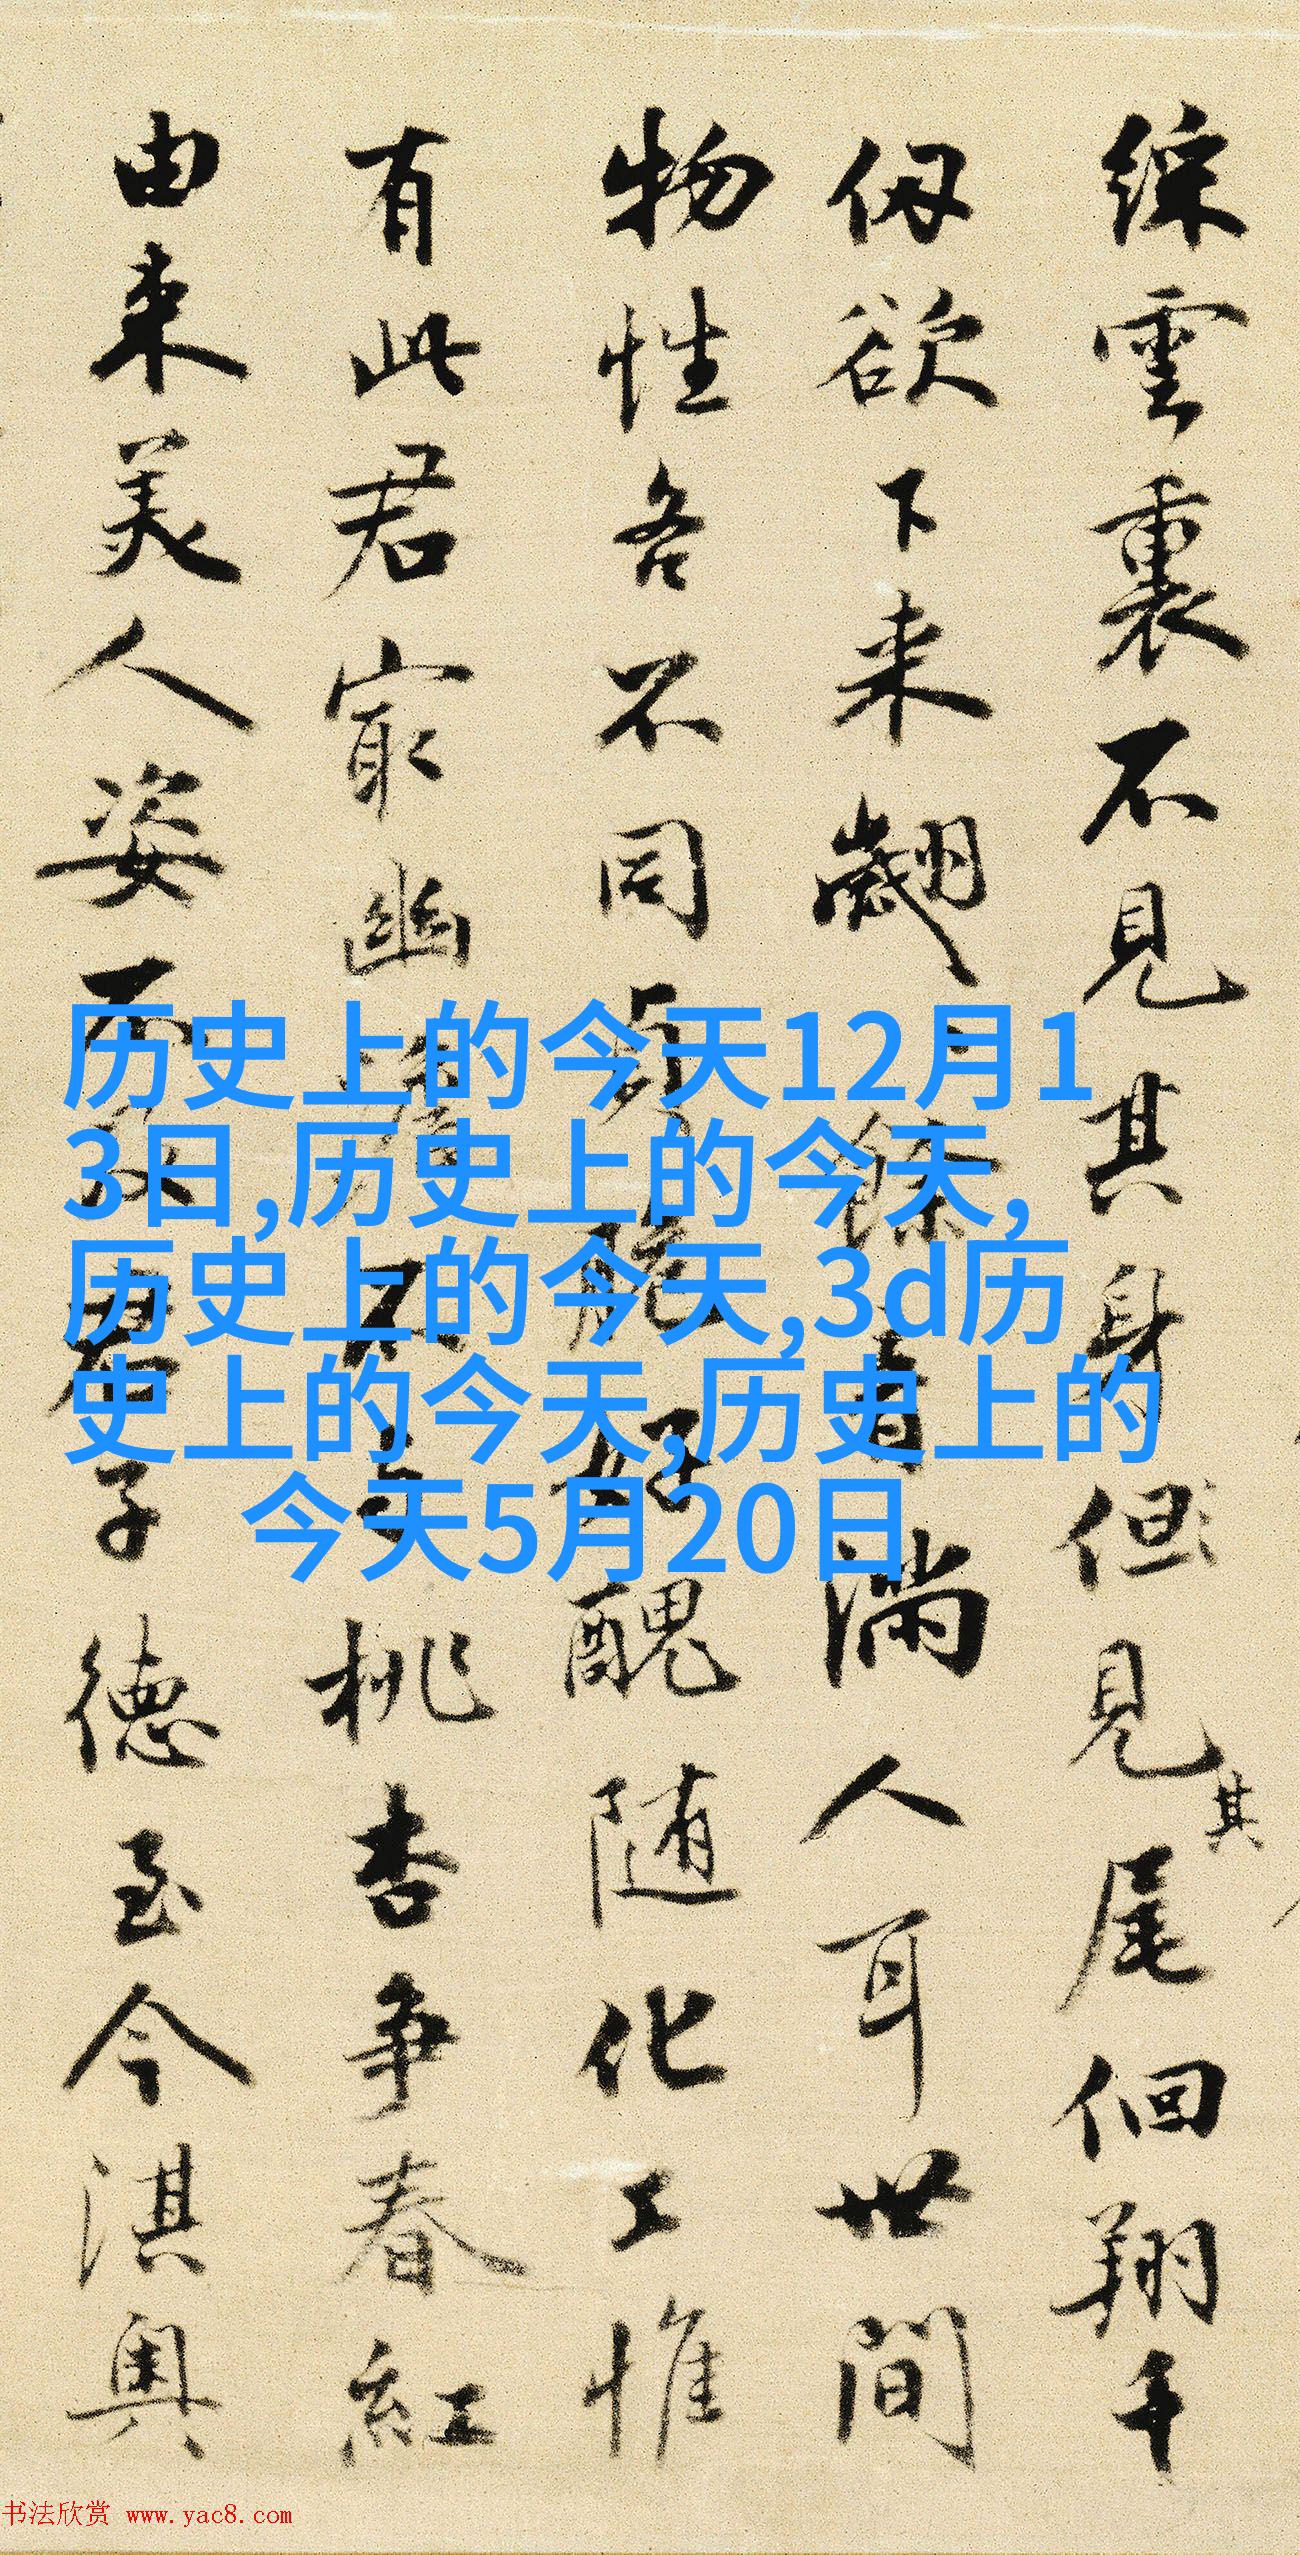 綵雲裏不見其身但見其尾徊翔千
仭欲下来翽 餘音滿人耳世間
物性各不同 醜随化工惟
有此君家幽 桃杏争春紅
由来美人姿不 君子德至今淇奥
历史上的今天12月1
3日,历史上的今天,
历史上的今天,3d历
史上的今天,历史上的
今天5月20日
书法欣赏 www.yac8.com